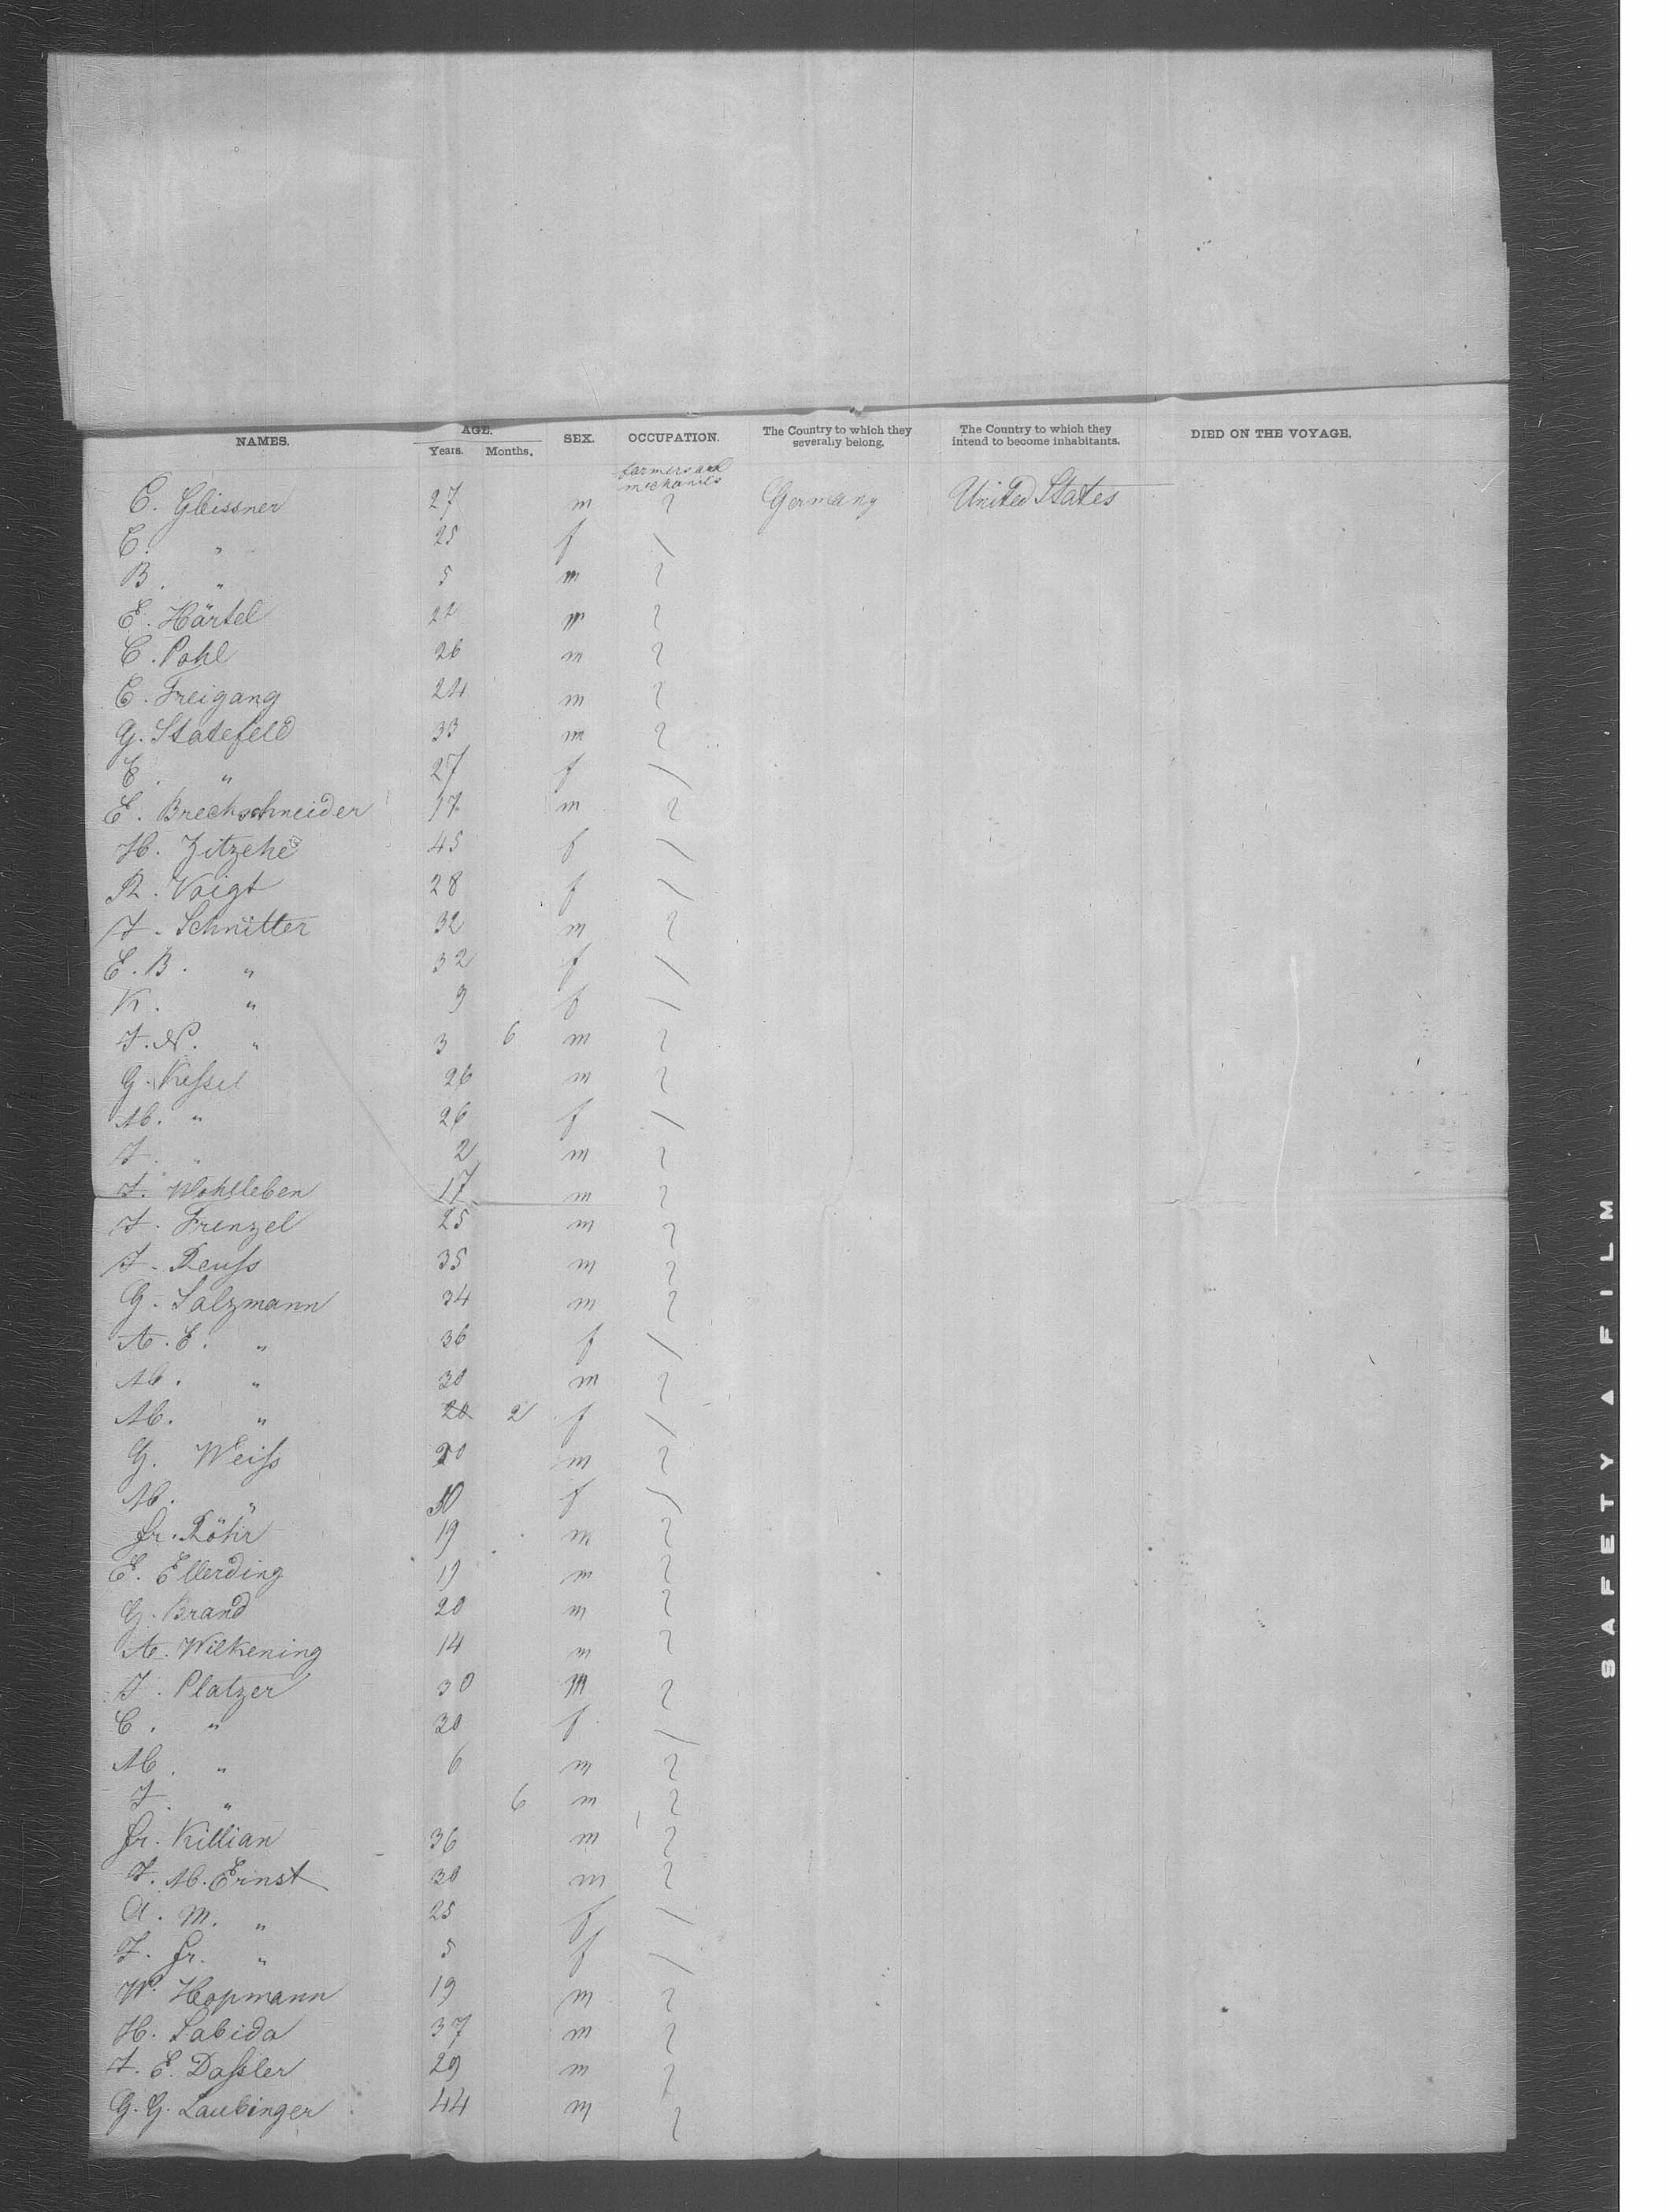 NAMES. AGE. SEX. OCCUPATION. The Country to which they severally belong. The Country to which they intend to become inhabitants. DIED ON THE VOYAGE.
Years. Months.
farmers and mechanics
C. Gleissner 27 m Germany United States
C. " 25 f
B. " 5 m
E. Härtel 22 m
C. Pohl 26 m
C. Freigang 24 m
G. Statefeld 33 m
C. " 27 f
E. Brechschneider 17 m
H. Zitzche 45 f
R. Voigt 28 f
J. Schnitter 32 m
E. B. " 32 f
K. " 9 f
J. N. " 3 6 m
G. Kessel 26 m
M. " 26 f
J. " 2 m
J. Wohlleben 17 m
J. Frenzel 25 m
J. Reuſs 35 m
G. Salzmann 34 m
A. E. " 36 f
M. " 30 m
M. " 2 f
G. Weiſs m
M. " f
Fr. Röhr 19 m
E. Ellerding 19 m
G. Brand 20 m
A. Wilkening 14 m
J. Platzer 30 m
C. " 30 f
M. " 6 m
J. " 6 m
Fr. Killian 36 m
J. M. Ernst 30 m
A. M. " 25 f
J. Fr. " 5 f
W. Hopmann 19 m
H. Labida 37 m
J. E. Daſsler 29 m
G. G. Laubinger 44 m
SAFETY A FILM